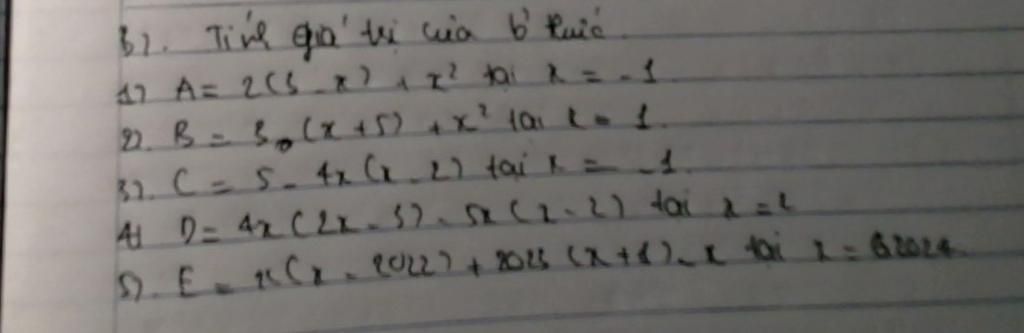 B). Tính giá trị của b' thức.
1) A = 2(3 - x) + x² tại x = -1
2). B = 3.(x + 5) + x² tại x = 1.
3). C = 5 - 4x(x - 2) tại x = -1.
4) D = 4x(2x - 3) - 5x(x - 2) tại x = 2
5). E = x(x - 2022) + 2023(x + 1) - x tại x = 2024.